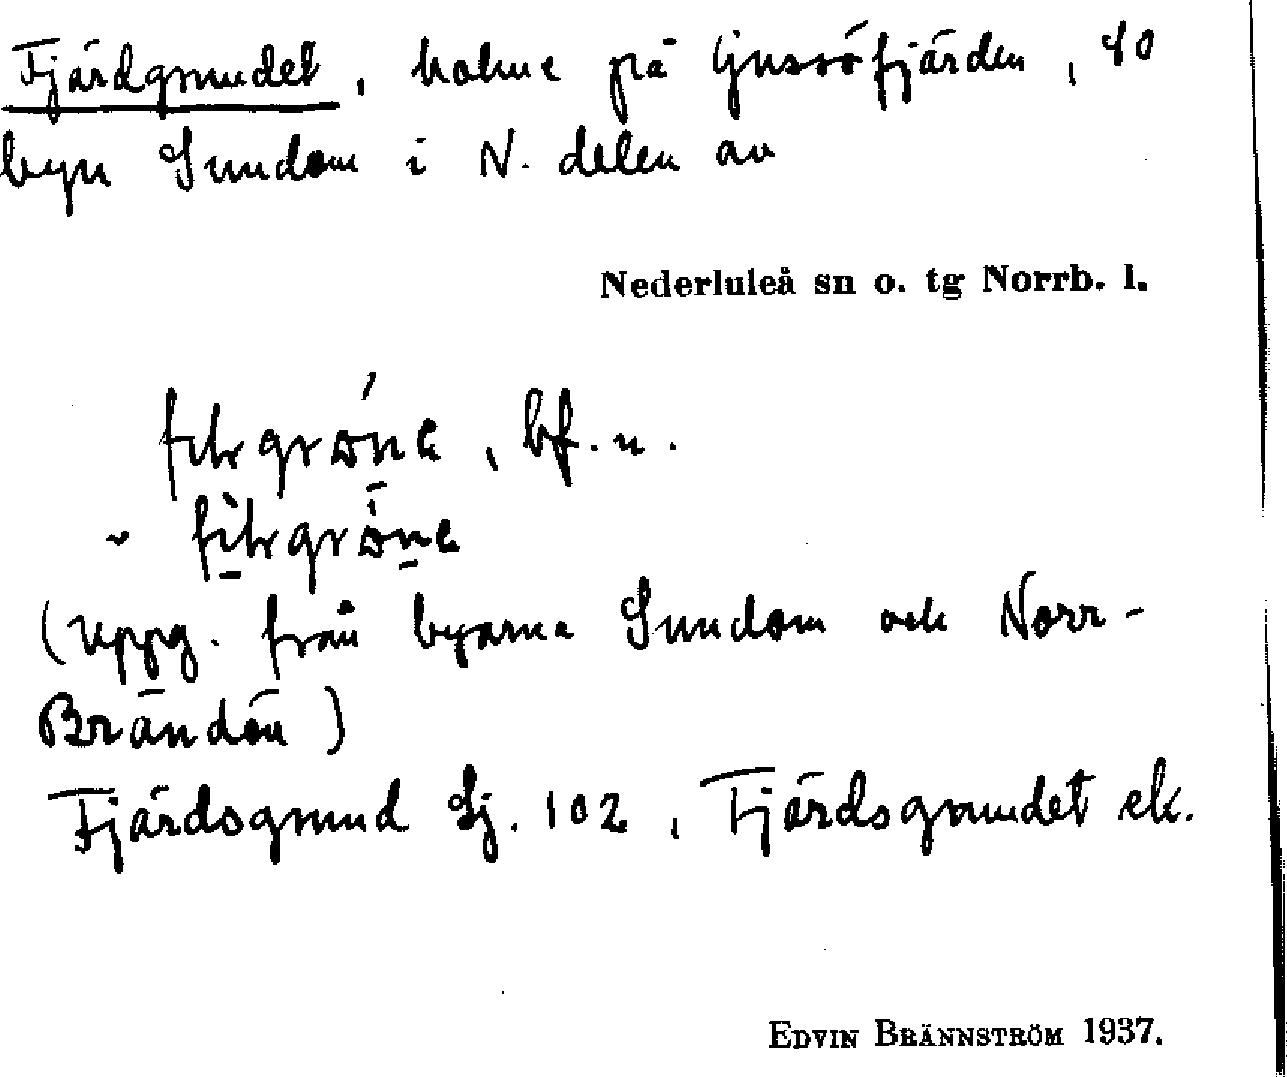 Fjärdgrundet, holme på Ljussöfjärden, SO
byn Sundom i N. delen av
Nederluleå sn o. tg Norrb. l.
bf. n.
(uppg. från byarna Sundom och Norr-
Brändön)
Fjärdsgrund Sj. 102, Fjärdsgrundet ek.
EDVIN BRÄNNSTRÖM 1937.